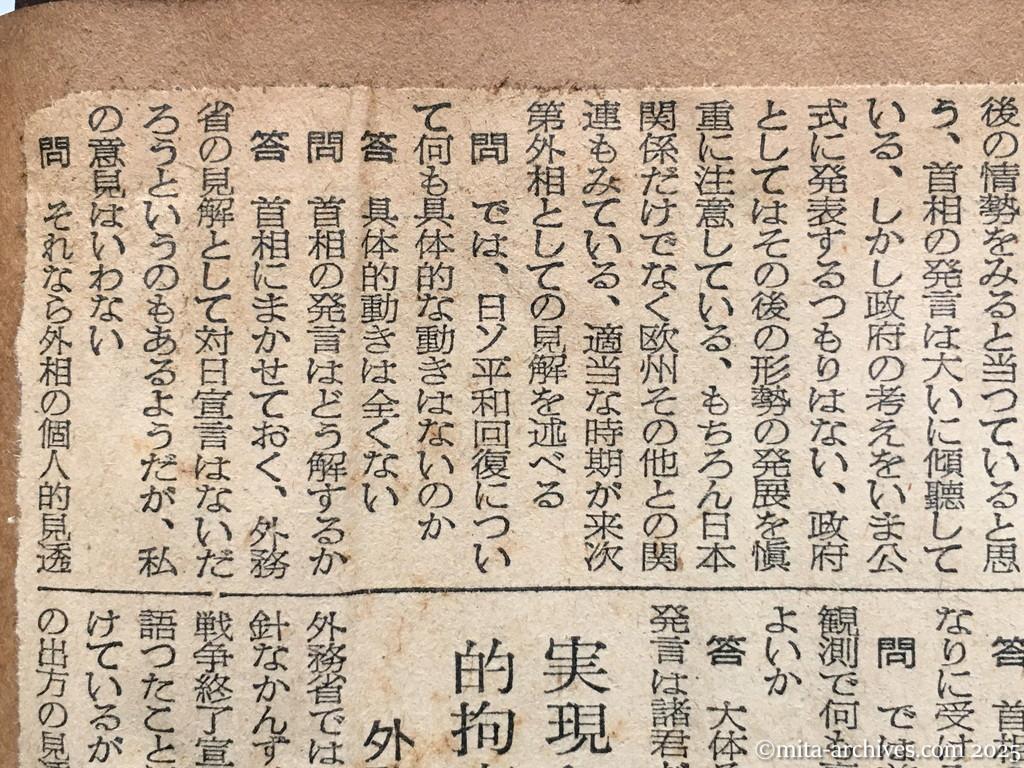 後の情勢をみると当つていると思
う、首相の発言は大いに傾聴して
いる、しかし政府の考えをいま公
式に発表するつもりはない、政府
としてはその後の形勢の発展を愼
重に注意している、もちろん日本
関係だけでなく欧州その他との関
連もみている、適当な時期が来次
第外相としての見解を述べる
問 では、日ソ平和回復につい
て何も具体的な動きはないのか
答 具体的動きは全くない
問 首相の発言はどう解するか
答 首相にまかせておく、外務
省の見解として対日宣言はないだ
ろうというのもあるようだが、私
の意見はいわない
問 それなら外相の個人的見透
答 首相
なりに受け
問 では
観測で何も
よいか
答 大体そ
発言は諸君が
実現
的拘
外
外務省では
針なかんず
戦争終了宣
語つたこと
けているが
の出方の見透
©mita-archives.com 2025